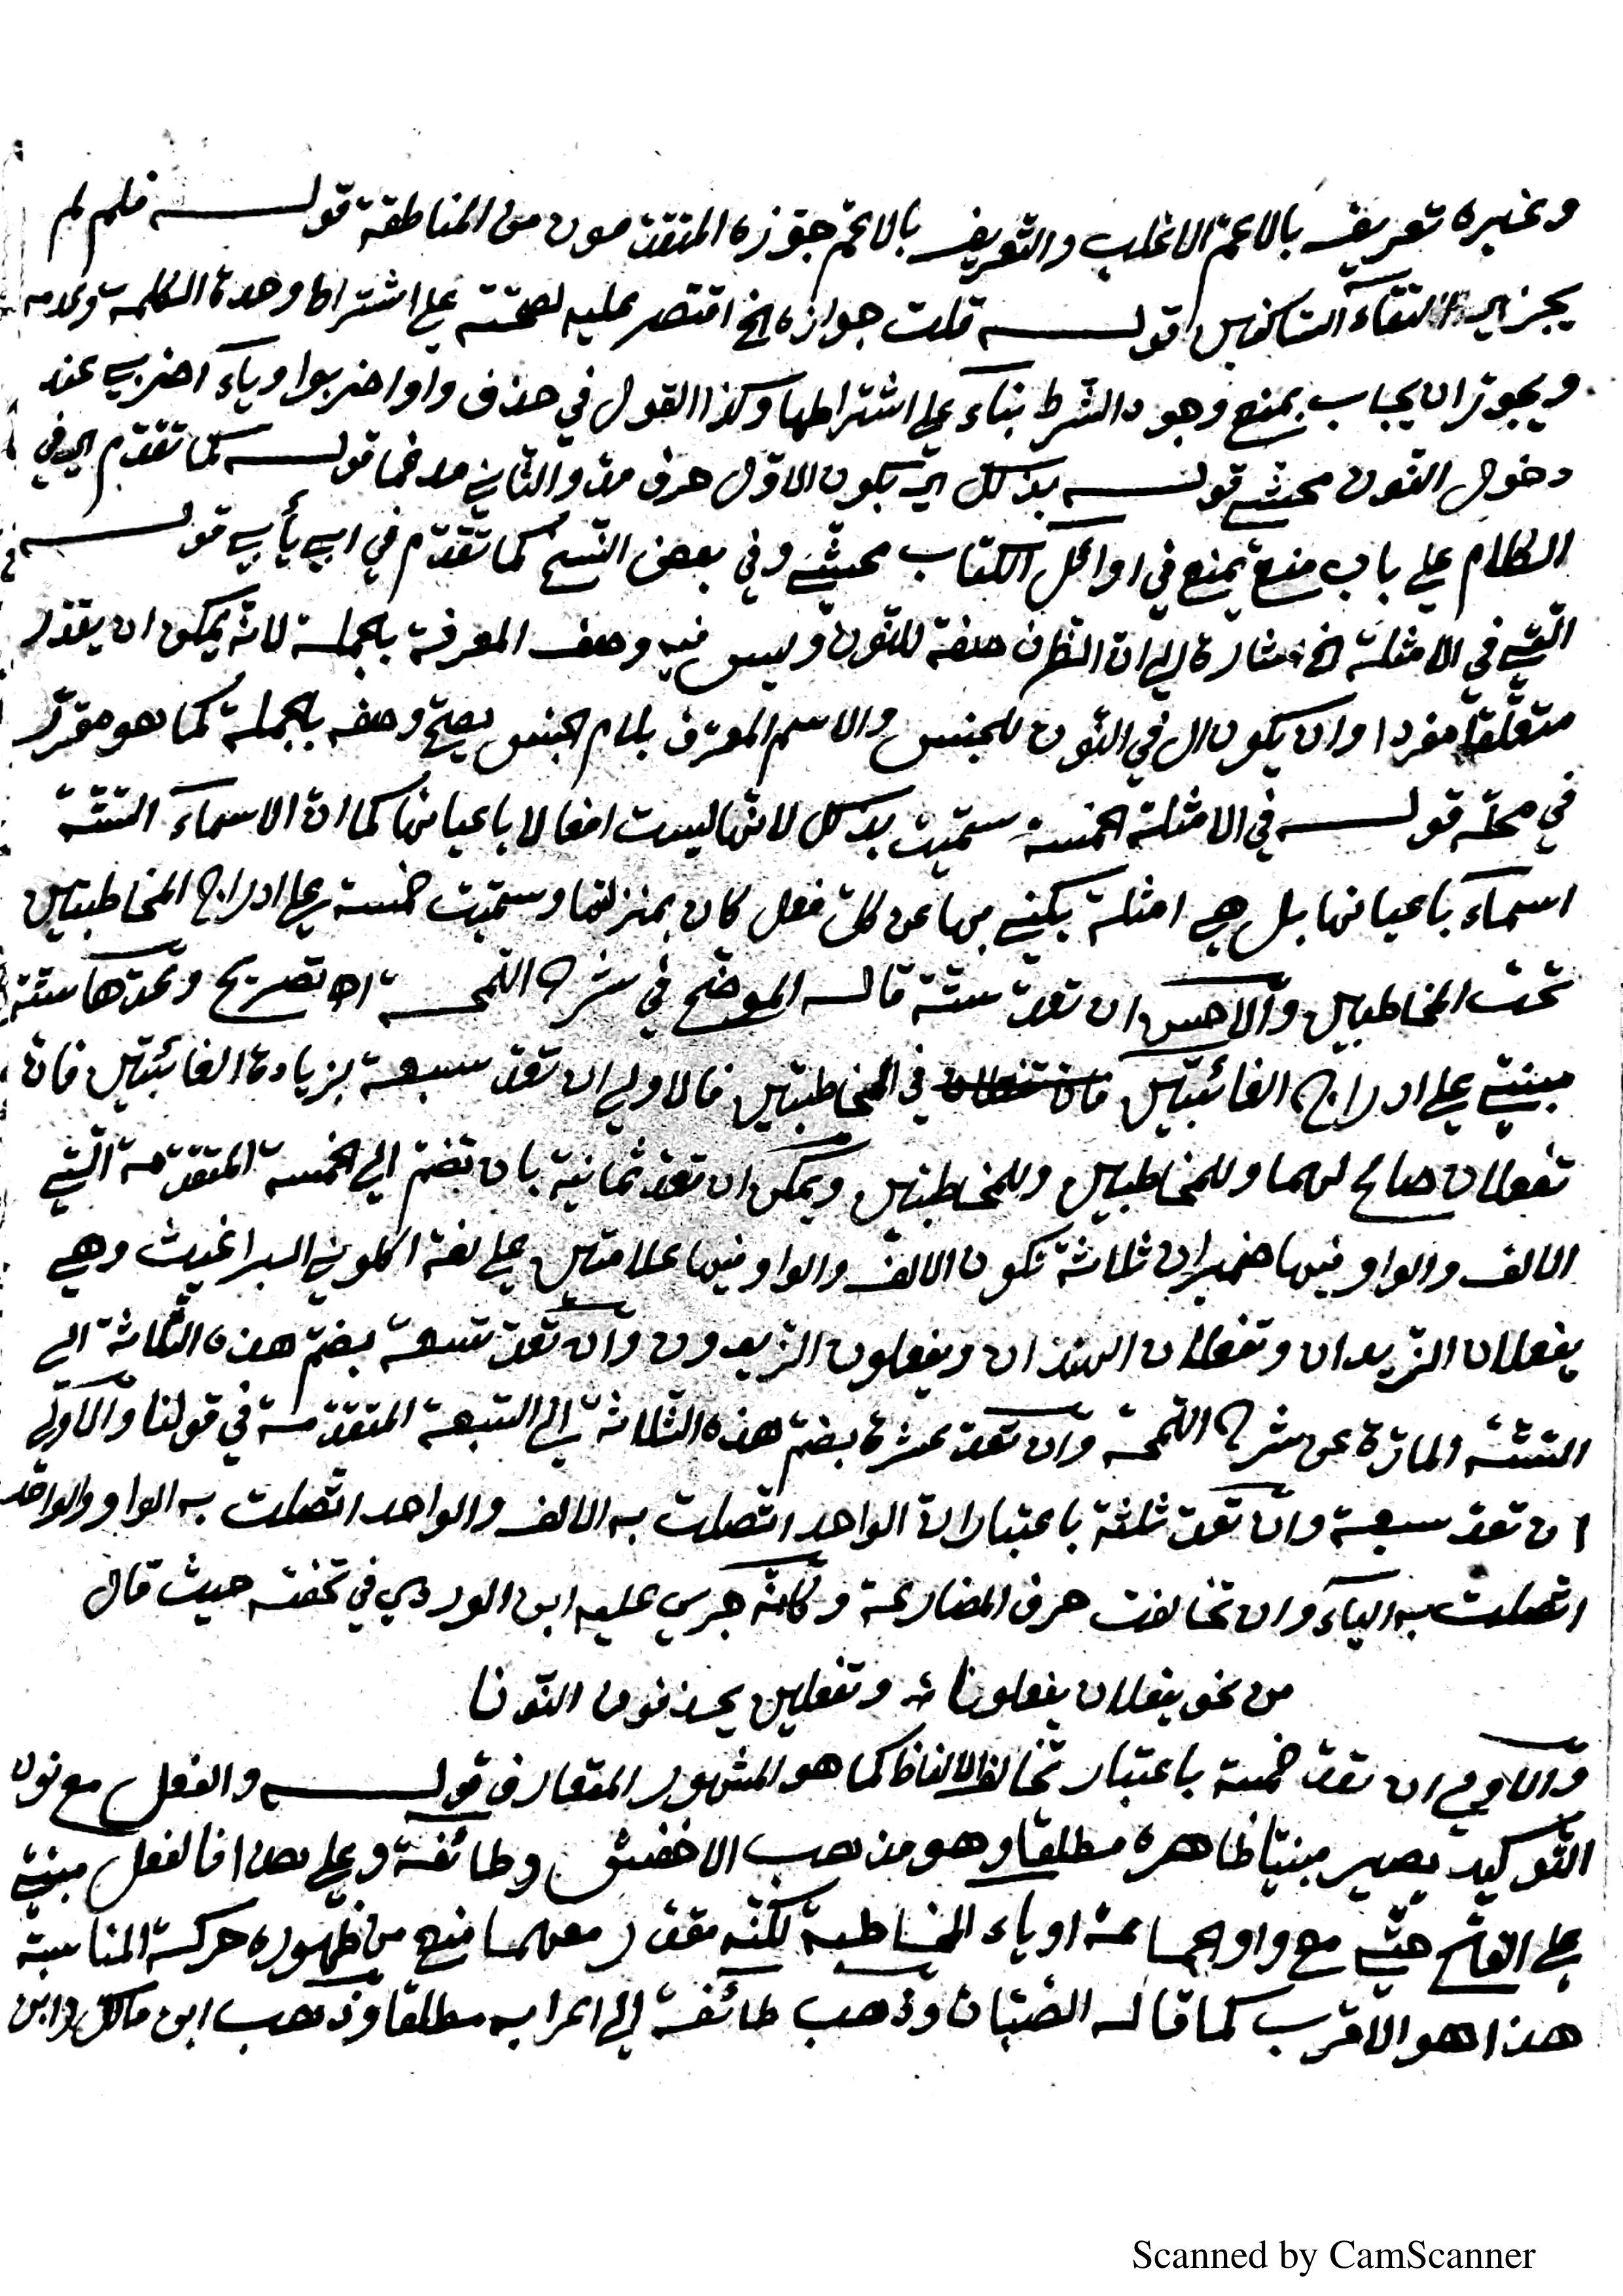 وغيره تعريف بالاعم الاغلب والتعريف بالاعم جوّزه المتقدّمون من المناطقة قوله فلم لم
يجز اي التقاء السّاكنين قوله قلت جوازه الخ اقتصر عليه لصحّته علي اشتراط وحدة الكلمة وعدمه
ويجوز ان يجاب بمنع وجود الشرط بناء علي اشتراطها وكذا القول في حذف واو اضربوا وياء اضربي عند
دخول النّون محشي قوله بذلك اي بكون الاوّل حرف مدّ والثاني مدغما قوله كما تقدّم اي في
الكلام علي باب منع يمنع في اوائل الكتاب محشي وفي بعض النّسخ كما تقدّم في ابي يأبي قوله
الّتي في الامثلة الخ اشارة الي ان الظرف صفة للنّون وليس فيه وصف المعرفة بالجملة لانّه يمكن ان يقدّر
متعلّقا مفردا وان يكون ال في النّون للجنس والاسم المعرّف بلام الجنس يصحّ وصفه بالجملة كما هو مقرّر
في محلّه قوله في الامثلة الخمسة سمّيت بذلك لانّها ليست افعالا باعيانها كما انّ الاسماء السّتّة
اسماء باعيانها بل هي امثلة يكني بها عن كلّ فعل كان بمنزلتها وسمّيت خمسة علي ادراج المخاطبتين
تحت المخاطبين والاحسن ان تعدّ ستّة قاله الموضّح في شرح اللّمحة اه تصريح وعدّها ستّة
مبنيّ علي ادراج الغائبتين في المخاطبتين فالاولي ان تعدّ سبعة بزيادة الغائبتين فانّ
تفعلان صالح لهما وللمخاطبين وللمخاطبتين ويمكن ان تعدّ ثمانية بان تضمّ الي الخمسة المتقدّمة الّتي
الالف والواو فيها ضميران ثلاثة تكون الالف والواو فيها علامتين علي لغة اكلوني البراغيث وهي
يفعلان الزّيدان وتفعلان الهندان ويفعلون الزّيدون وان تعدّ تسعة بضمّ هذه الثّلاثة الي
السّتّة المارّة عن شرح اللّمحة وان تعدّ عشرة بضمّ هذه الثّلاثة الي السّبعة المتقدّمة في قولنا والاولي
ان تعدّ سبعة وان تعدّ ثلثة باعتبار انّ الواحد اتّصلت به الالف والواحد اتّصلت به الواو والواحد
اتّصلت به الياء وان تخالفت حرف المضارعة وكانّه جري عليه ابن الوردي في تحفته حيث قال
من نحو يفعلان يفعلونا ؞ وتفعلين يحذفون النّونا
والاولي ان تعدّ خمسة باعتبار تخالف الالفاظ كما هو المشهور المتعارف قوله والفعل مع نون
التّوكيد يصير مبنيّا ظاهره مطلقا وهو مذهب الاخفش وطائفة وعلي هذا فالفعل مبنيّ
علي الفتح حتّي مع واو الجماعة او ياء المخاطبة لكنّه مقدّر معهما منع من ظهوره حركة المناسبة
هذا هو الاقرب كما قاله الصّبّان وذهب طائفة الي اعرابه مطلقا وذهب ابن مالك وابن
Scanned by CamScanner